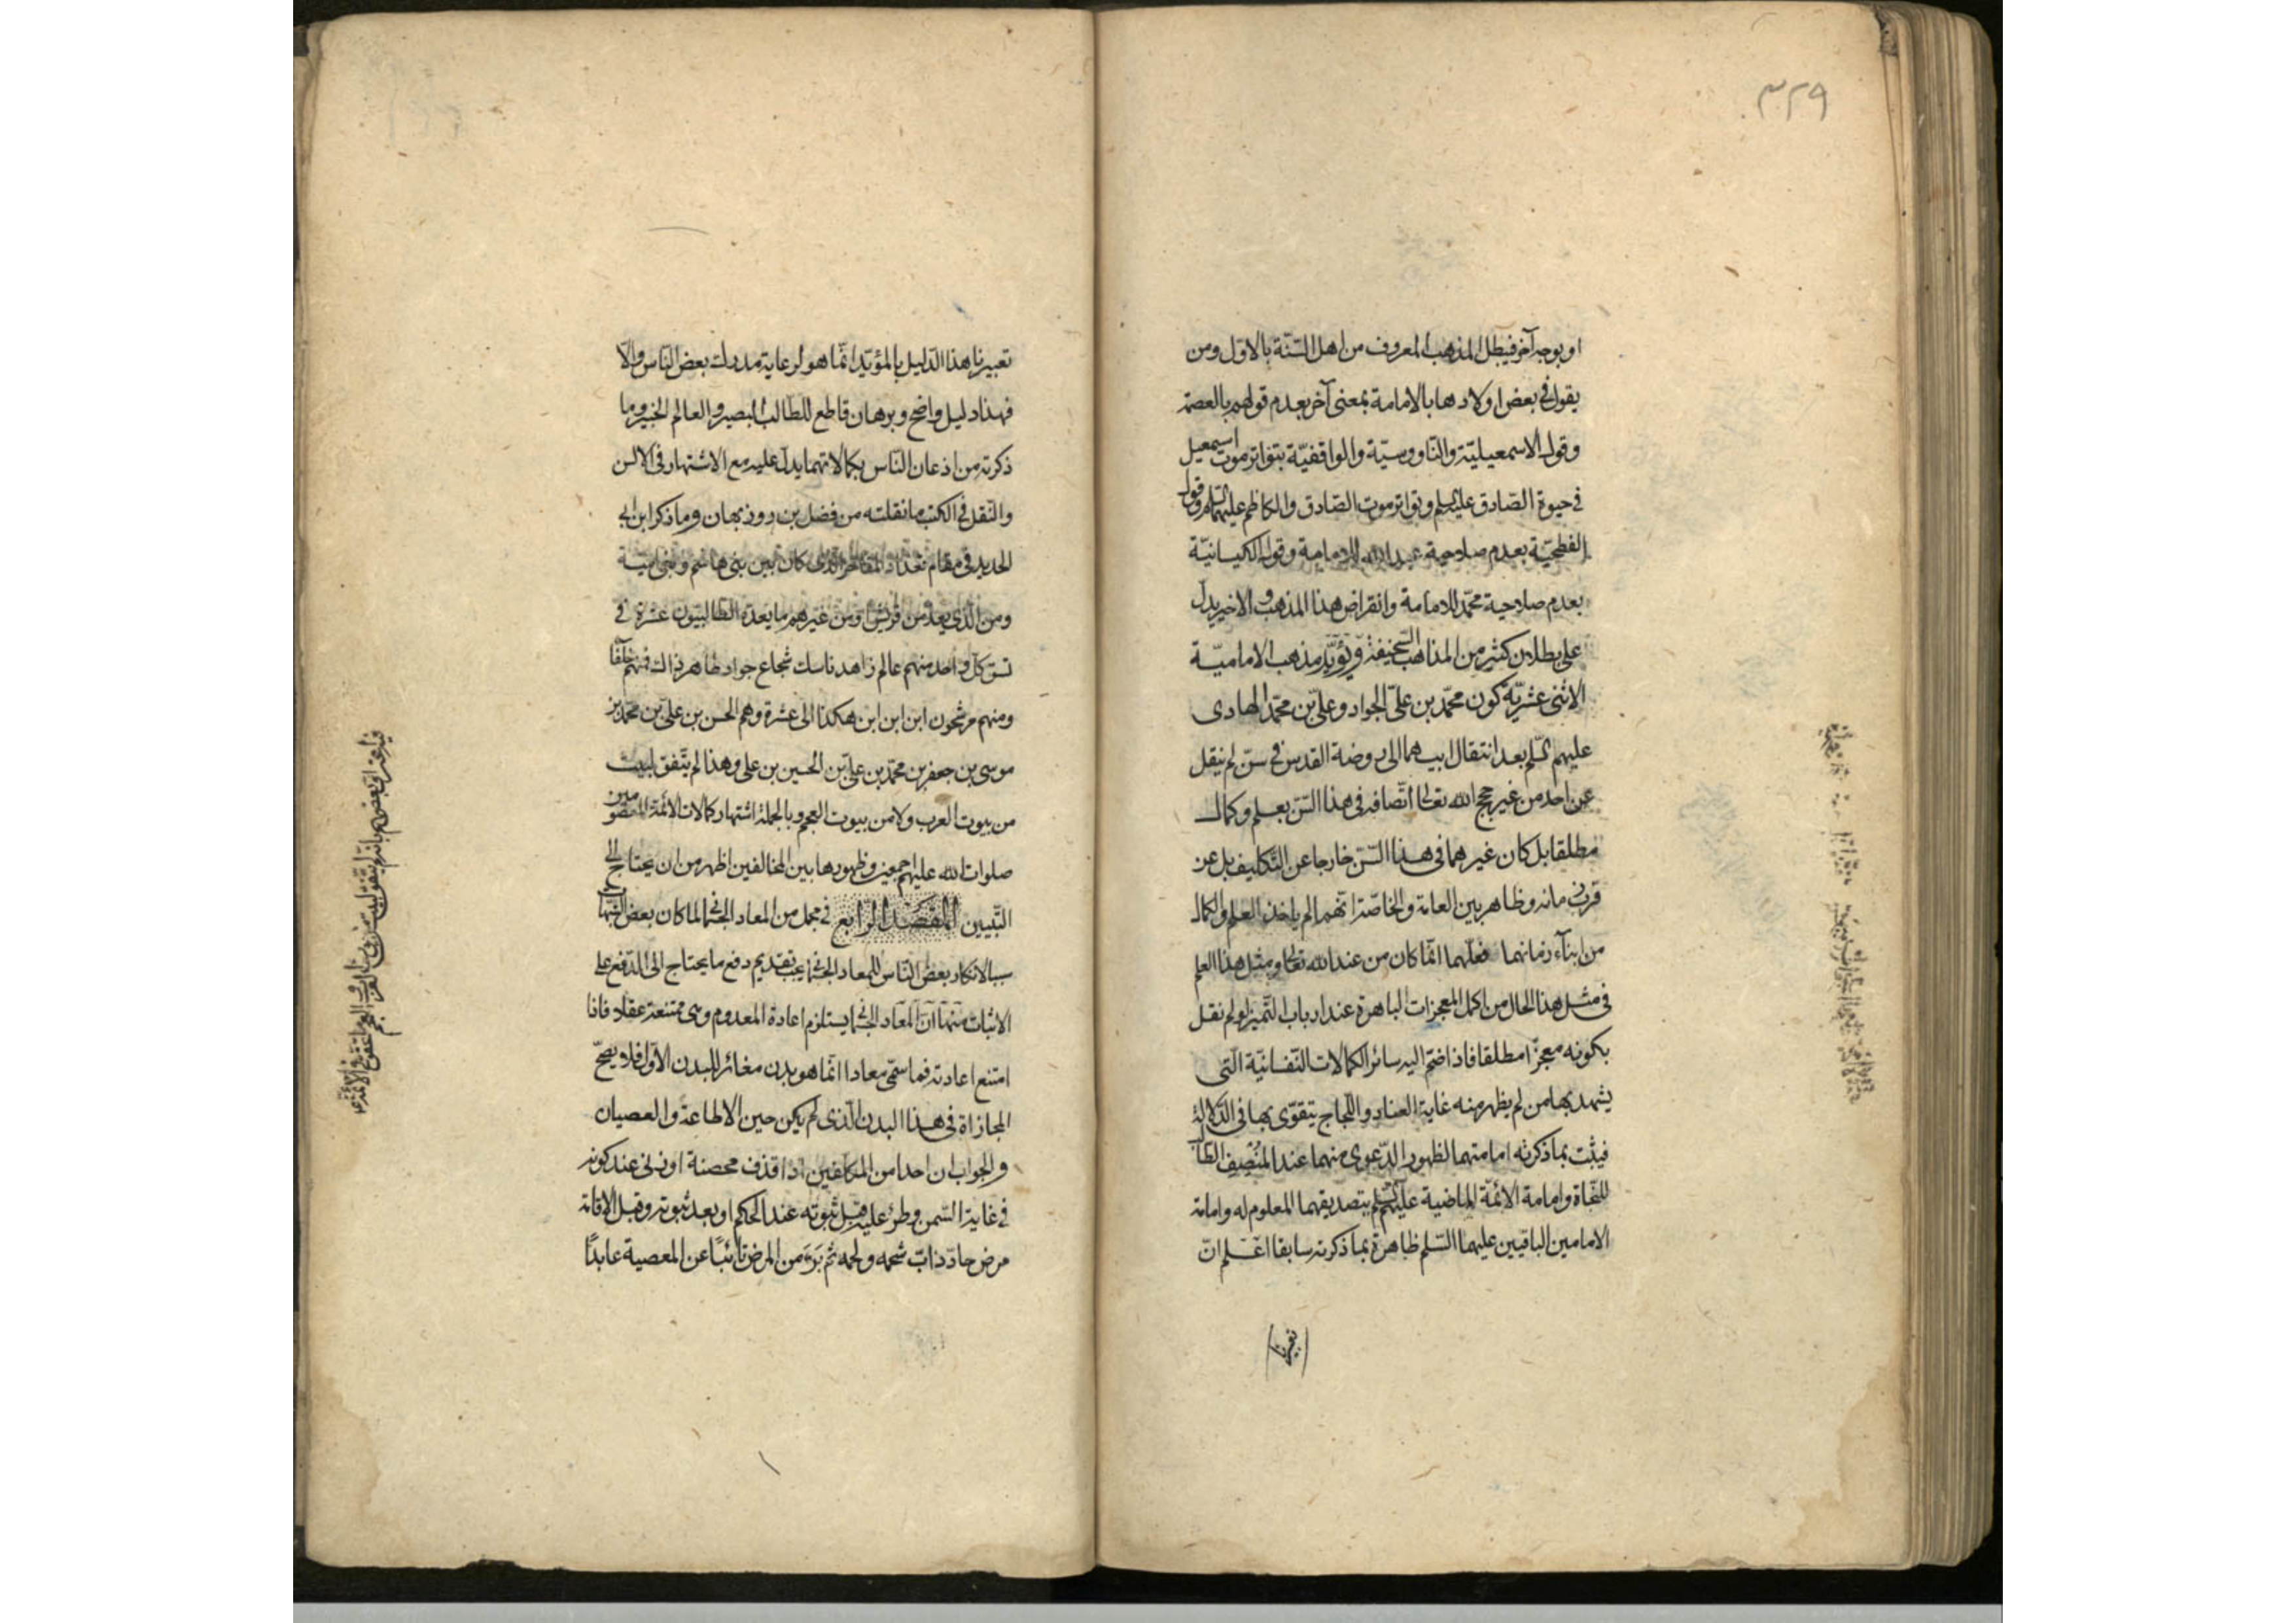 ٣٢٩
او بوجه آخر فيبطل المذهب المعروف من اهل السنّة بالاوّل ومن
يقول في بعض اولادها بالامامة بمعنى آخر بعدم قولهم بالعصمة
وقول الاسمعيليّة والناووسيّة والواقفيّة بتواتر موت اسمعيل
في حيوة الصّادق عليه السلم وبتواتر موت الصّادق والكاظم عليهما السلم وقول
الفطحيّة بعدم صلاحية عبد الله للامامة وقول الكيسانيّة
بعدم صلاحية محمّد للامامة وانقراض هذا المذهب والاخير يدلّ
على بطلان كثير من المذاهب السخيفة ويؤيّد مذهب الاماميّة
الاثنى عشريّة كون محمّد بن علىّ الجواد وعلىّ بن محمّد الهادى
عليهم السّلم بعد انتقال ابيهما الى روضة القدس في سنّ لم ينقل
عن احد من غير حجج الله تعالى اتّصافه فى هذا السّنّ بعلم وكمال
مطلقا بل كان غيرهما فى هذا السّنّ خارجا عن التّكليف بل عن
قربه مانه وظاهر بين العامة والخاصّة انّهما لم ياخذا العلم والكمال
من ابنآء زمانهما فعلمهما انّما كان من عند الله تعالى ومثل هذا العلم
فى مثل هذا الحال من اكمل المعجزات الباهرة عند ارباب التّميز لو لم نقل
بكونه معجزا مطلقا فاذا ضمّ اليه سائر الكمالات النّفسانيّة الّتى
يشهد بها من لم يظهر منه غاية العناد واللّجاج يتقوّى بها فى الدّلالة
فيثبت بما ذكرته امامتهما لظهور الدّعوى منهما عند المنصف الطّالب
للنّجاة وامامة الائمّة الماضية عليهم السّلم بتصديقهما المعلوم له وامامة
الامامين الباقيين عليهما السّلم ظاهرة بما ذكرته سابقا اعلم انّ
تعبيرنا هذا الدّليل بالمؤيّد انّما هو لرعاية مدرك بعض النّاس والّا
فهذا دليل واضح وبرهان قاطع للطّالب البصير والعالم الخبير وما
ذكرته من اذعان النّاس بكمالاتهما يدلّ عليه مع الاشتهار فى الالسن
والنّقل فى الكتب ما نقلته من فضل بن روزبهان وما ذكر ابن ابى
الحديد فى مقام تعداد المفاخر الّتى كان بين بنى هاشم وبنى اميّة
ومن الّذى يعدّ من قريش او من غيرهم ما يعدّه الطالبيّون عشرة فى
نسق كلّ واحد منهم عالم زاهد ناسك شجاع جواد طاهر زاك فمنهم خلفآء
ومنهم مرشّحون ابن ابن ابن هكذا الى عشرة وهم الحسن بن علىّ بن محمّد بن
موسى بن جعفر بن محمّد بن علىّ بن الحسين بن على وهذا لم يتّفق لبيت
من بيوت العرب ولا من بيوت العجم وبالجملة اشتهار كمالات الائمّة المعصومين
صلوات الله عليهم اجمعين وظهورها بين المخالفين اظهر من ان يحتاج الى
التّبيين المقصد الرّابع فى مجمل من المعاد الجسمانى لما كان بعض الشّبهات
سببا لانكار بعض النّاس للمعاد الجسمانى يجب تقديم دفع ما يحتاج الى الدّفع على
الاثبات منها انّ المعاد الجسمانى يستلزم اعادة المعدوم وهى ممتنعة عقلا فاذا
امتنع اعادته فما سمّى معادا انّما هو بدن مغائر للبدن الاوّل فلا يصحّ
المجازاة فى هذا البدن الّذى لم يكن حين الاطاعة والعصيان
والجواب ان احدا من المكلّفين اذا قذف محصنة او زنى عند كونه
فى غاية السّمن وطرء عليه قبل ثبوته عند الحاكم او بعد ثبوته وقبل الاقامة
مرض حادّ ذاب شحمه ولحمه ثم برء من المرض تائبا عن المعصية عابدا